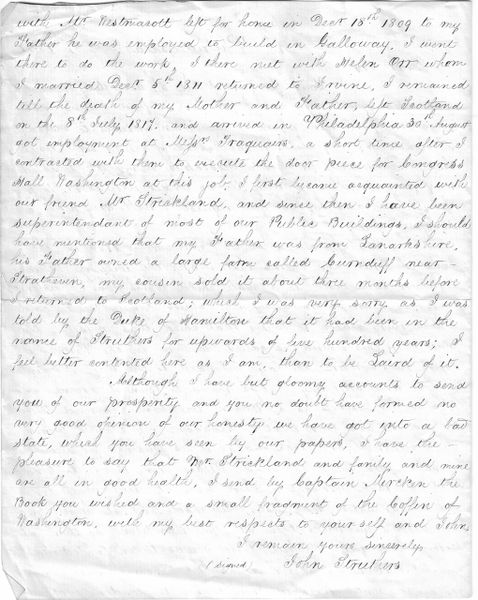 with Mr Westmacott left for home in Decr 15th 1809 to my
Father he was employed to build in Galloway, I went
there to do the work, I there met with Helen Orr whom
I married Decr 5th 1811 returned to Irvine, I remained
till the death of my Mother and Father, left Scotland
on the 8th July, 1817, and arrived in Philadelphia 30th August
got employment at Messrs Traquairs, a short time after I
contracted with them to execute the door piece for Congress
Hall Washington at this job, I first became acquainted with
our friend Mr Strickland, and since then I have been
superintendant of most of our Public Buildings, I should
have mentioned that my Father was from Lanarkshire,
his Father owned a large farm called Curnduff near
Strathaven, my cousin sold it about three months before
I returned to Scotland; which I was very sorry as I was
told by the Duke of Hamilton that it had been in the
name of Struthers for upwards of five hundred years; I
feel better contented here as I am, than to be Laird of it.
Although I have but gloomy accounts to send
you of our prosperity and you no doubt have formed no
very good opinion of our honesty we have got into a bad
state, which you have seen by our papers, I have the
pleasure to say that Mr Strickland and family and mine
are all in good health, I send by Captain Mercken the
Book you wished and a small fragment of the Coffin of
Washington, with my best respects to yourself and John,
I remain yours sincerely,
(signed) John Struthers